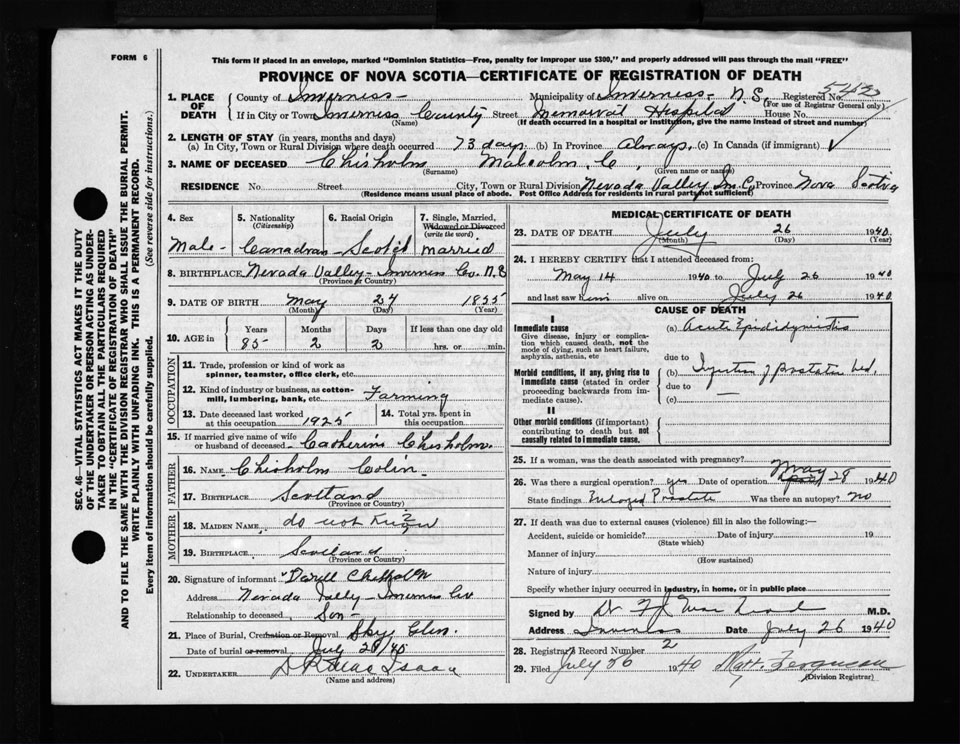 FORM 6
This form if placed in an envelope, marked "Dominion Statistics—Free, penalty for improper use $300," and properly addressed will pass through the mail "FREE"
PROVINCE OF NOVA SCOTIA—CERTIFICATE OF REGISTRATION OF DEATH
1. PLACE OF DEATH
County of Inverness Municipality of Inverness N.S. Registered No. 5423
(For use of Registrar General only)
If in City or Town Inverness County Street Memorial Hospital House No.
(Name) (If death occurred in a hospital or institution, give the name instead of street and number)
2. LENGTH OF STAY (in years, months and days)
(a) In City, Town or Rural Division where death occurred 73 days (b) In Province Always (c) In Canada (if immigrant)
3. NAME OF DECEASED Chisholm Malcolm C.
(Surname) (Given name or names)
RESIDENCE No. Street City, Town or Rural Division Nevada Valley Inv. C. Province Nova Scotia
(Residence means usual place of abode. Post Office Address for residents in rural parts not sufficient)
4. Sex 5. Nationality 6. Racial Origin 7. Single, Married,
(Citizenship) Widowed or Divorced
(write the word)
Male Canadian Scotch Married
8. BIRTHPLACE Nevada Valley Inverness Co. N.S
(Province or Country)
9. DATE OF BIRTH May 24 1855
(Month) (Day) (Year)
10. AGE in Years Months Days If less than one day old
85 2 2 hrs. or min.
OCCUPATION
11. Trade, profession or kind of work as
spinner, teamster, office clerk, etc.
12. Kind of industry or business, as cotton-
mill, lumbering, bank, etc. Farming
13. Date deceased last worked at this occupation 1925 14. Total yrs. spent in this occupation
15. If married give name of wife
or husband of deceased Catherine Chisholm
FATHER
16. NAME Chisholm Colin
17. BIRTHPLACE Scotland
MOTHER
18. MAIDEN NAME do not Know
19. BIRTHPLACE Scotland
(Province or Country)
20. Signature of informant
Address Nevada Valley Inverness Co
Relationship to deceased Son
21. Place of Burial, Cremation or Removal Skye Glen
Date of burial or removal July 28/40
22. UNDERTAKER
(Name and address)
MEDICAL CERTIFICATE OF DEATH
23. DATE OF DEATH July 26 1940
(Month) (Day) (Year)
24. I HEREBY CERTIFY that I attended deceased from:
May 14 1940 to July 26 1940
and last saw him alive on July 26 1940
CAUSE OF DEATH
I
Immediate cause (a) Acute Epididymitis
Give disease, injury or complication which caused death, not the mode of dying, such as heart failure, asphyxia, asthenia, etc
due to
Morbid conditions, if any, giving rise to immediate cause (stated in order proceeding backwards from immediate cause).
(b) Injection of prostatic bed.
due to
(c)
II
Other morbid conditions (if important) contributing to death but not causally related to immediate cause.
25. If a woman, was the death associated with pregnancy?
26. Was there a surgical operation? yes Date of operation May 28 1940
State findings Enlarged Prostate Was there an autopsy? No
27. If death was due to external causes (violence) fill in also the following:—
Accident, suicide or homicide? Date of injury 19
(State which)
Manner of injury
(How sustained)
Nature of injury
Specify whether injury occurred in Industry, in home, or in public place
Signed by Dr M.D.
Address Inverness Date July 26 1940
28. Registrar's Record Number 2
29. Filed July 26 1940 Matt. Ferguson
(Division Registrar)
SEC. 46—VITAL STATISTICS ACT MAKES IT THE DUTY
OF THE UNDERTAKER OR PERSON ACTING AS UNDER-
TAKER TO OBTAIN ALL THE PARTICULARS REQUIRED
IN THE "CERTIFICATE OF REGISTRATION OF DEATH"
AND TO FILE THE SAME WITH THE DIVISION REGISTRAR WHO SHALL ISSUE THE BURIAL PERMIT.
WRITE PLAINLY WITH UNFADING INK. THIS IS A PERMANENT RECORD.
Every item of information should be carefully supplied. (See reverse side for instructions.)